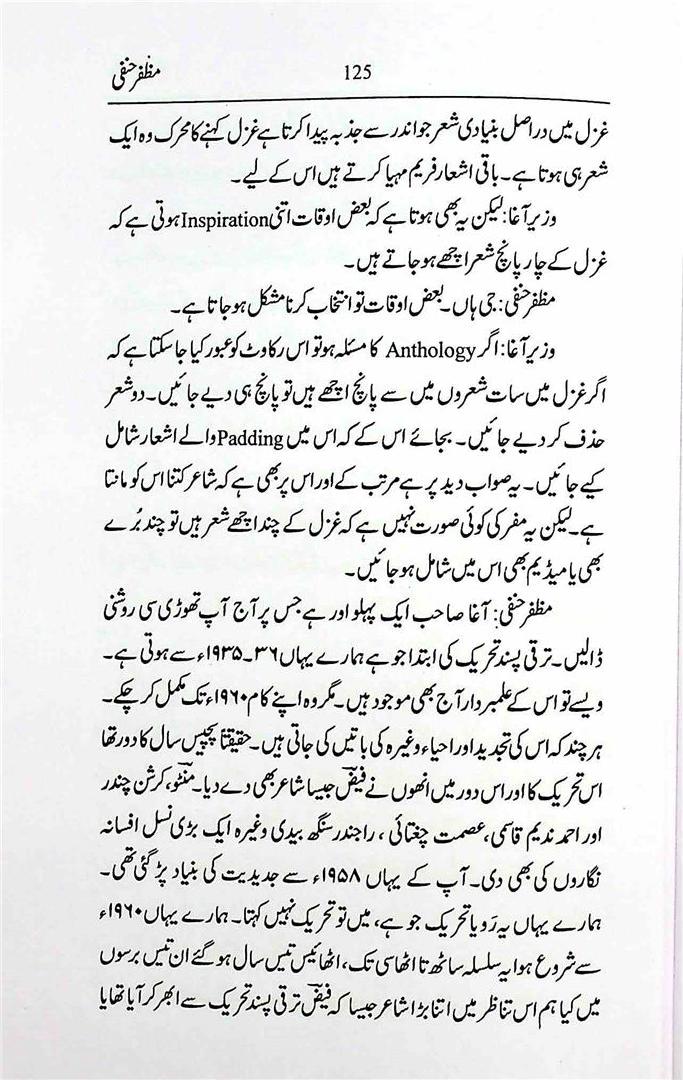 مظفر حنفی
125
غزل میں دراصل بنیادی شعر جو اندر سے جذبہ پیدا کرتا ہے غزل کہنے کا محرک وہ ایک
شعر ہی ہوتا ہے۔ باقی اشعار فریم مہیا کرتے ہیں اس کے لیے۔
وزیر آغا: لیکن یہ بھی ہوتا ہے کہ بعض اوقات اتنی Inspiration ہوتی ہے کہ
غزل کے چار پانچ شعر اچھے ہو جاتے ہیں۔
مظفر حنفی: جی ہاں۔ بعض اوقات تو انتخاب کرنا مشکل ہو جاتا ہے۔
وزیر آغا: اگر Anthology کا مسئلہ ہو تو اس رکاوٹ کو عبور کیا جا سکتا ہے کہ
اگر غزل میں سات شعروں میں سے پانچ اچھے ہیں تو پانچ ہی دیے جائیں۔ دو شعر
حذف کر دیے جائیں۔ بجائے اس کے کہ اس میں Padding والے اشعار شامل
کیے جائیں۔ یہ صواب دید پر ہے مرتب کے اور اس پر بھی ہے کہ شاعر کتنا اس کو مانتا
ہے۔ لیکن یہ مفر کی کوئی صورت نہیں ہے کہ غزل کے چند اچھے شعر ہیں تو چند بُرے
بھی یا میڈیم بھی اس میں شامل ہو جائیں۔
مظفر حنفی: آغا صاحب ایک پہلو اور ہے جس پر آج آپ تھوڑی سی روشنی
ڈالیں۔ ترقی پسند تحریک کی ابتدا جو ہے ہمارے یہاں ۳۶۔۱۹۳۵ء سے ہوتی ہے۔
ویسے تو اس کے علمبردار آج بھی موجود ہیں۔ مگر وہ اپنے کام ۱۹۶۰ء تک مکمل کر چکے۔
ہر چند کہ اس کی تجدید اور احیاء وغیرہ کی باتیں کی جاتی ہیں۔ حقیقتاً پچیس سال کا دور تھا
اس تحریک کا اور اس دور میں انھوں نے فیضؔ جیسا شاعر بھی دے دیا۔ منٹو، کرشن چندر
اور احمد ندیم قاسمی، عصمت چغتائی، راجندر سنگھ بیدی وغیرہ ایک بڑی نسل افسانہ
نگاروں کی بھی دی۔ آپ کے یہاں ۱۹۵۸ء سے جدیدیت کی بنیاد پڑ گئی تھی۔
ہمارے یہاں یہ رَو یا تحریک جو ہے، میں تو تحریک نہیں کہتا۔ ہمارے یہاں ۱۹۶۰ء
سے شروع ہوا یہ سلسلہ ساٹھ تا اٹھاسی تک، اٹھائیس تیس سال ہو گئے ان تیس برسوں
میں کیا ہم اس تناظر میں اتنا بڑا شاعر جیسا کہ فیضؔ ترقی پسند تحریک سے ابھر کر آیا تھا یا